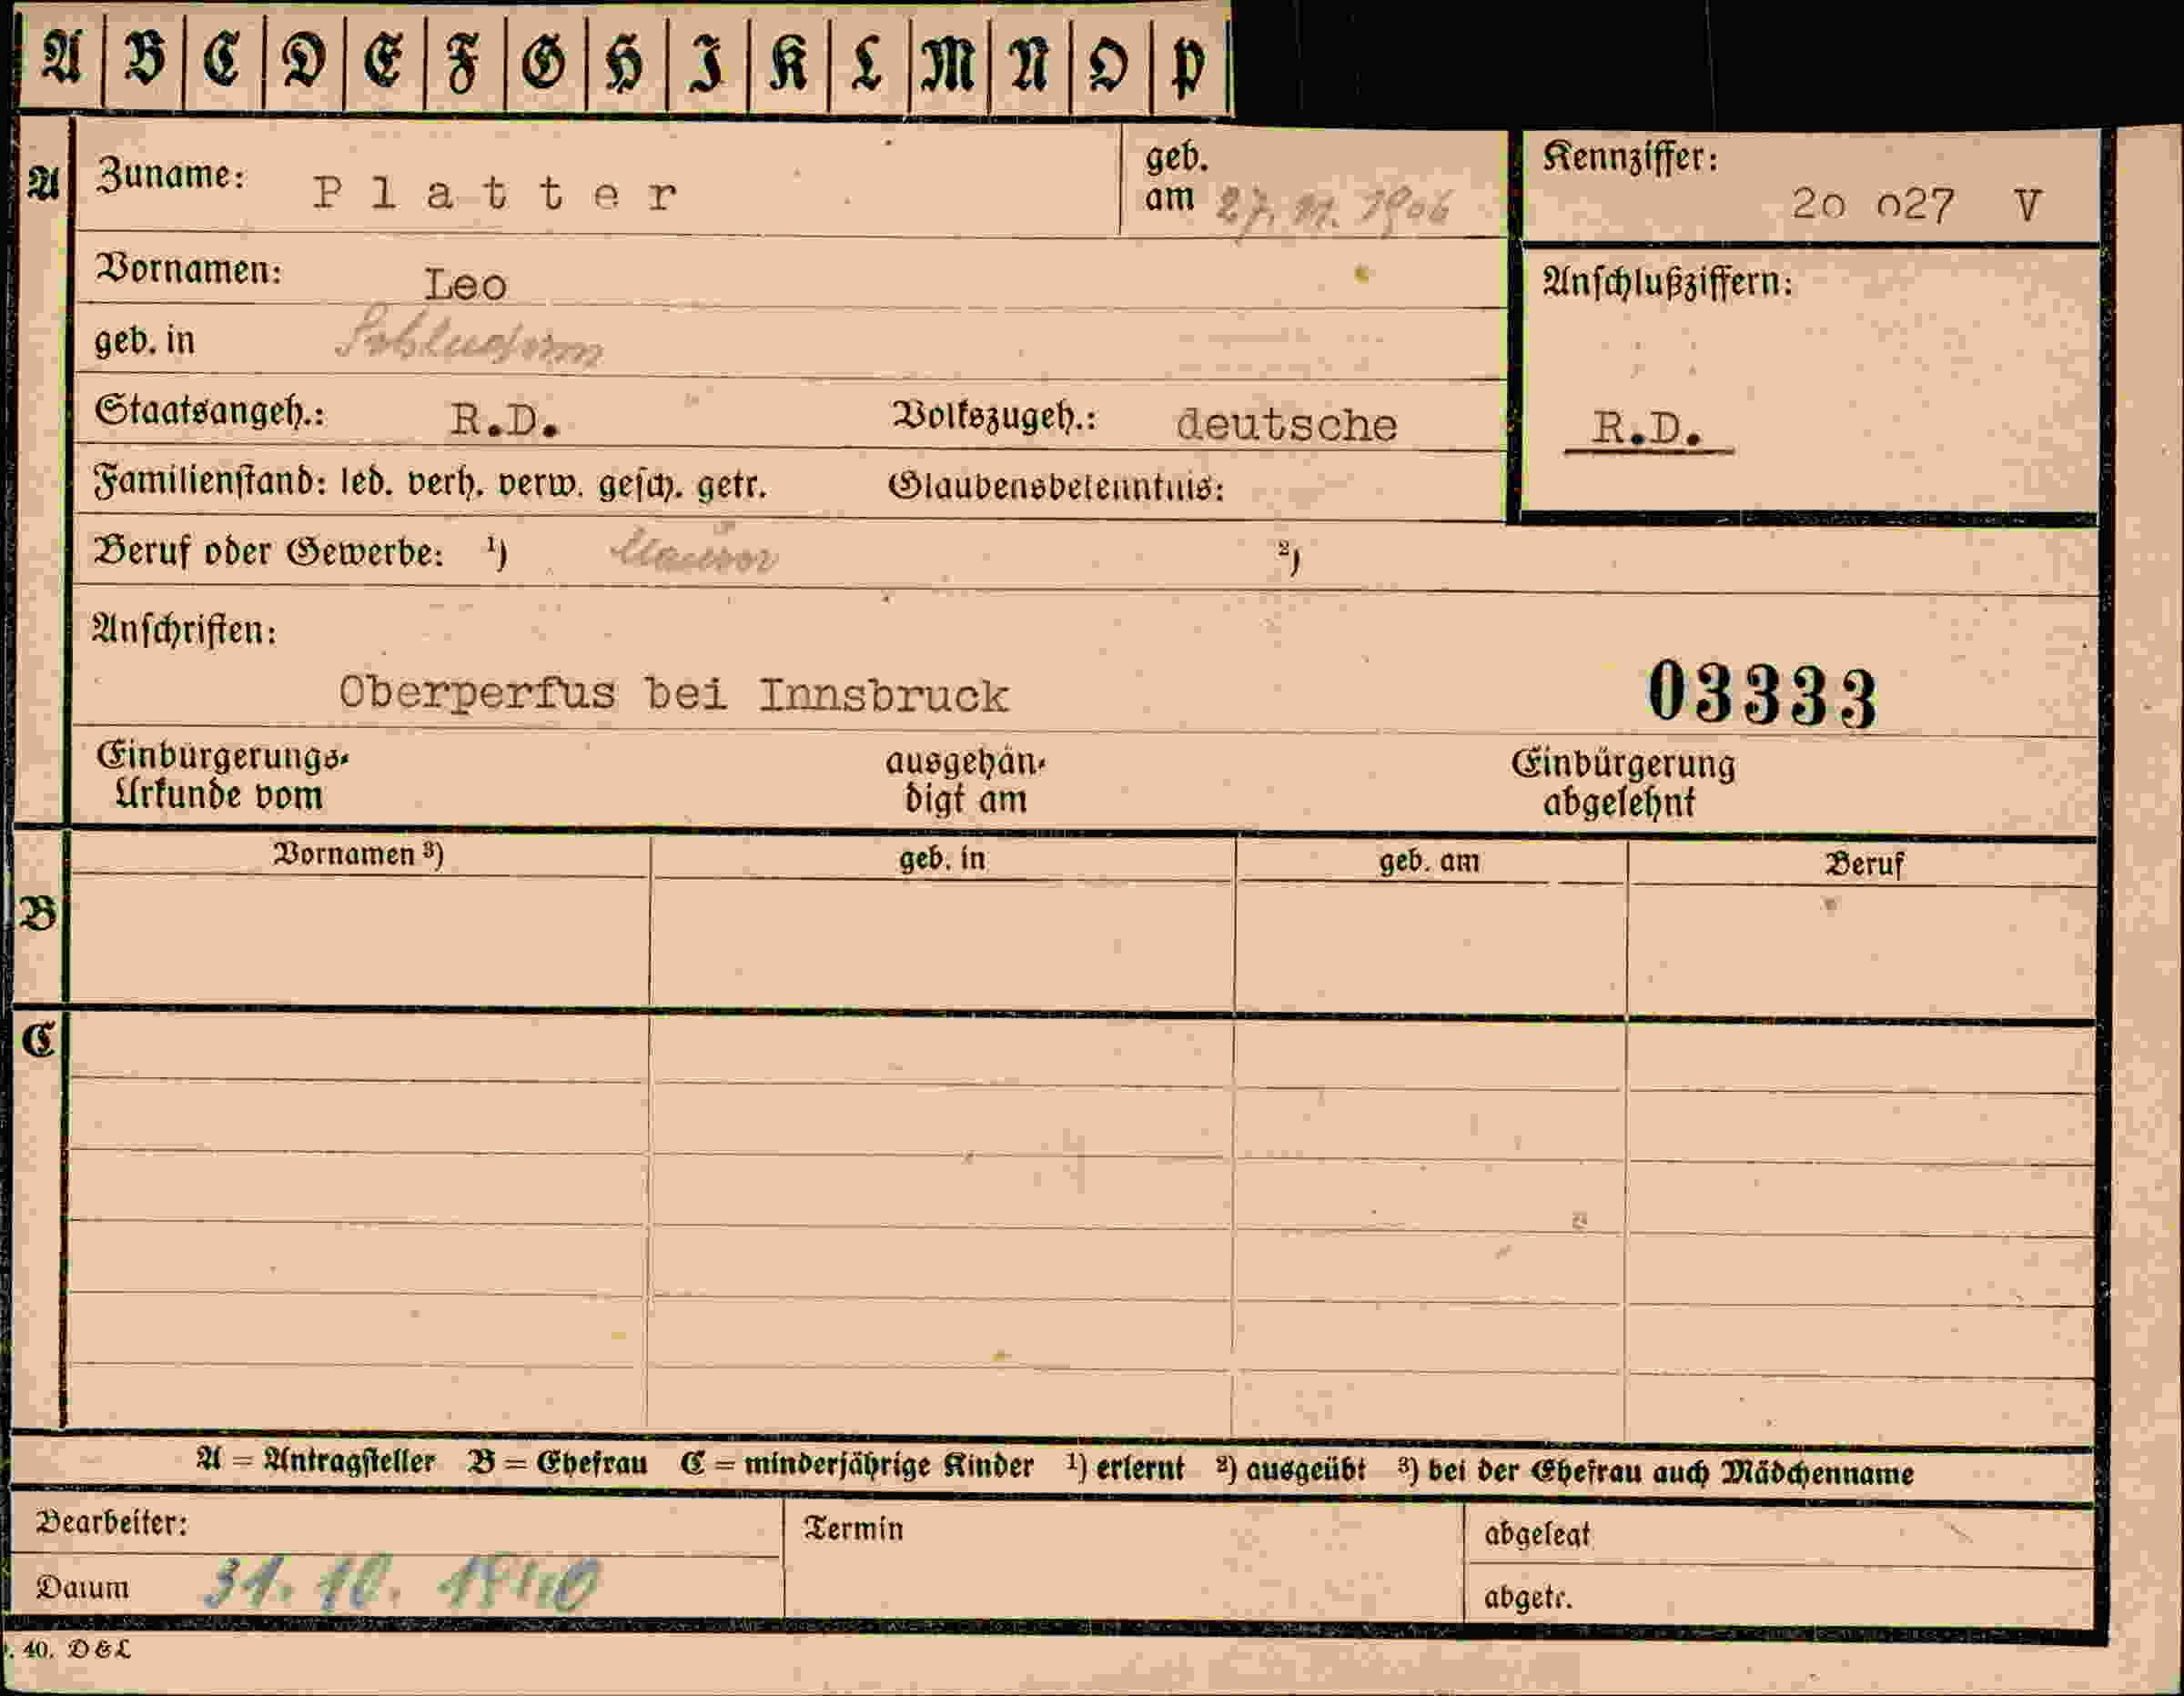 A B C D E F G H I K L M N O P
A Zuname: Platter geb. am 27. 11. 1906 Kennziffer: 20 027 V
Vornamen: Leo Anschlußziffern:
geb. in
Staatsangeh.: R.D. Volkszugeh.: deutsche R.D.
Familienstand: led. verh. verw. gesch. getr. Glaubensbekenntnis:
Beruf oder Gewerbe: ¹) ²)
Anschriften:
Oberperfus bei Innsbruck 03333
Einbürgerungs-
Urkunde vom
ausgehän-
digt am
Einbürgerung
abgelehnt
Vornamen ³) geb. in geb. am Beruf
B
C
A = Antragsteller B = Ehefrau C = minderjährige Kinder ¹) erlernt ²) ausgeübt ³) bei der Ehefrau auch Mädchenname
Bearbeiter: Termin abgelegt
Datum 31. 10. 1940 abgetr.
. 40. D & L